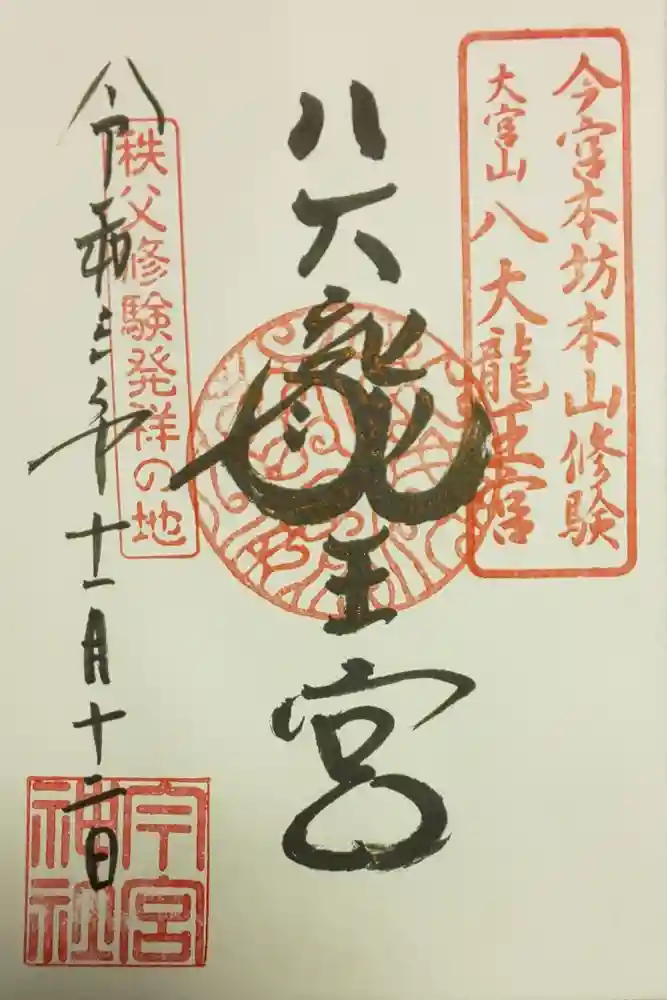 今宮本坊本山修験
大宮山 八大龍王宮
八大龍王宮
秩父修験発祥の地
令和三年十一月十二日
今宮
神社